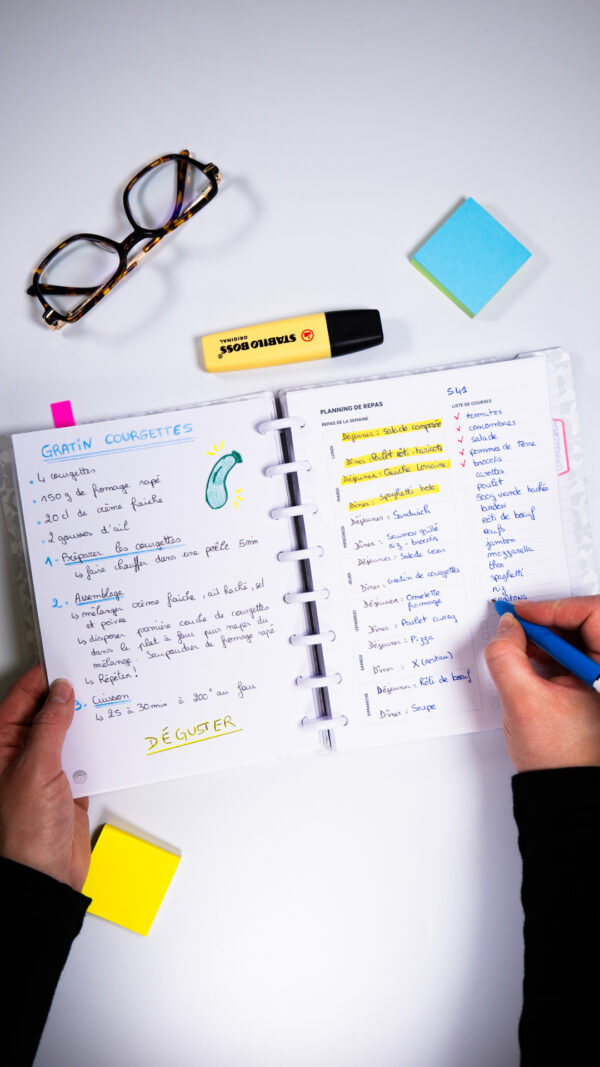 STABILO BOSS
ORIGINAL
GRATIN COURGETTES
4 courgettes
150 g de fromage rapé
20 cl de crème fraîche
2 gousses d'ail
1 - Préparer les courgettes
↳ faire chauffer dans une poêle 5mm
2. Assemblage
↳ mélanger crème fraîche, ail haché, sel
et poivre
↳ disposer première couche de courgettes
dans le plat à four puis napper du
mélange. Saupoudrer de fromage rapé.
↳ Répéter!
3. Cuisson
↳ 25 à 30min à 200° au four
DÉGUSTER
PLANNING DE REPAS
S41
REPAS DE LA SEMAINE
LUNDI
Déjeuner : salade composée
Dîner : Poulet rôti - haricots
MARDI
Déjeuner : Quiche Lorraine
Dîner : spaghetti bolo
MERCREDI
Déjeuner : Sandwich
Dîner : Saumon grillé
riz - brocolis
JEUDI
Déjeuner : Salade César
Dîner : Gratin de courgettes
VENDREDI
Déjeuner : Omelette
fromage
Dîner : Poulet curry
SAMEDI
Déjeuner : Pizza
Dîner : X (restau)
DIMANCHE
Déjeuner : Rôti de bœuf
Dîner : Soupe
LISTE DE COURSES
tomates
concombres
salade
pommes de terre
brocolis
carottes
poulet
500g viande hachée
lardon
rôti de bœuf
œufs
jambon
mozzarella
thon
spaghetti
riz